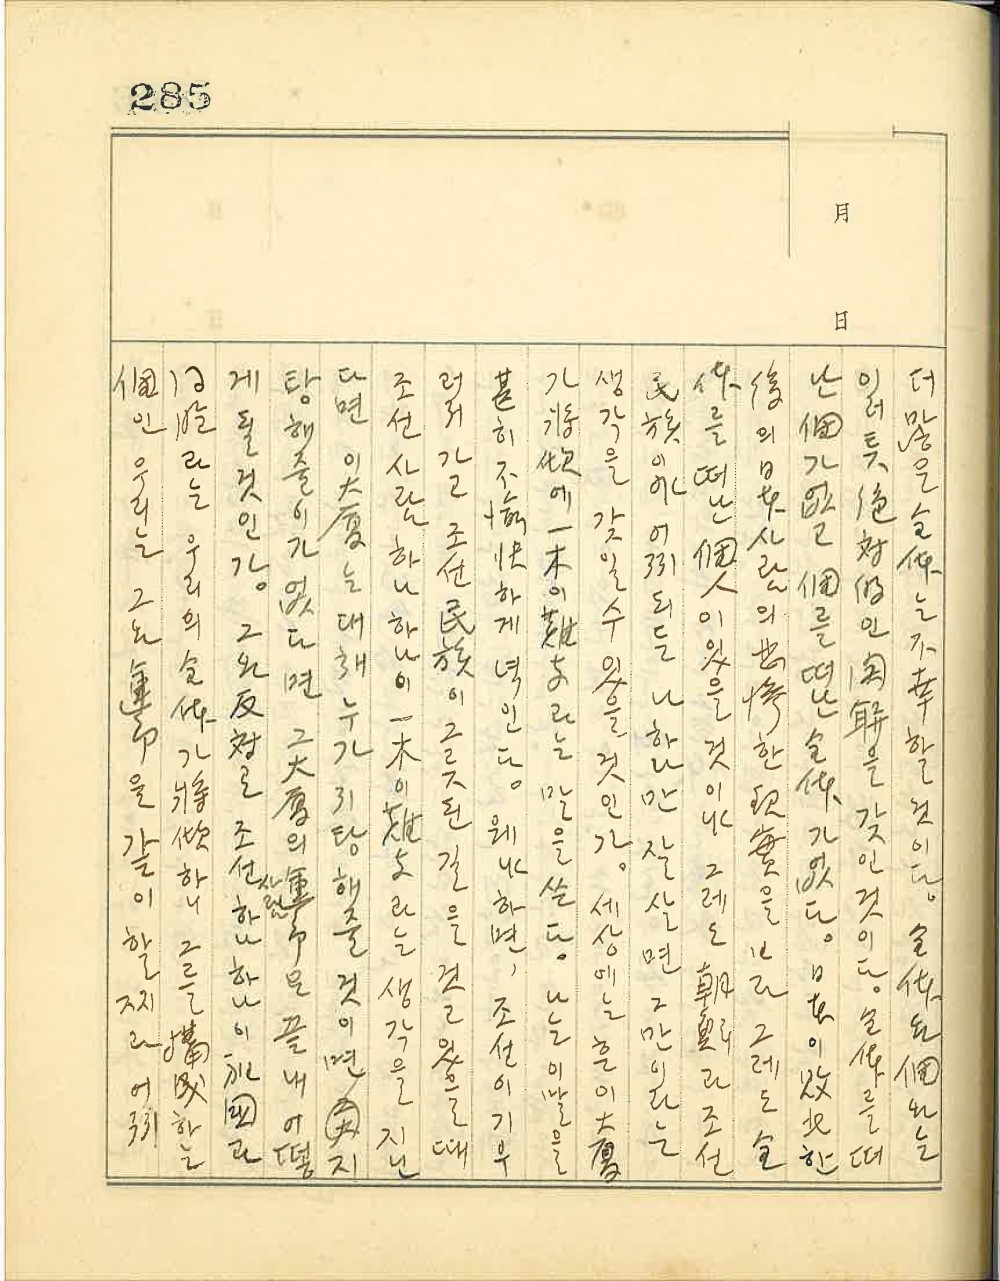 285
月
日
더 많을 全体는 不幸할 것이다. 全体와 個와는
일러 투 絶対的인 関聯을 갖인 것이다. 全体를 떠
난 個가 없고 個를 떠난 全体가 없다. 日本이 敗北한
後의 日本사람의 悲惨한 現実을 보라 그레도 全
体를 떠난 個人이 있을 것이냐 그레도 朝鮮과 조선
民族이야 어찌되든 나 하나만 잘 살면 그만이라는
생각을 갖일 수 있을 것인가. 세상에는 흔이 大廈
가 將傾에 一木이 難支라는 말을 쓴다. 나는 이 말을
甚히 不愉快하게 녁인다. 웨냐하면, 조선이 기우
러저 가고 조선民族이 그릇된 길을 걷고 있을 때
조선사람 하나하나이 一木이 難支라는 생각을 지닌
다면 이 大廈는 대체 누가 지탕해줄 것이면 大 지
탕해줄이가 없다면 그 大廈의 運命은 끝내 어떻
게 될 것인가. 그와 反対로 조선사람 하나하나이 祖国과
 라는 우리의 全体가 將傾하니 그를 構成하는
個인 우리는 그와 運命을 같이 할 찌라 어찌